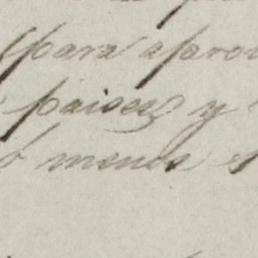 para aprov
paises y
ó menos